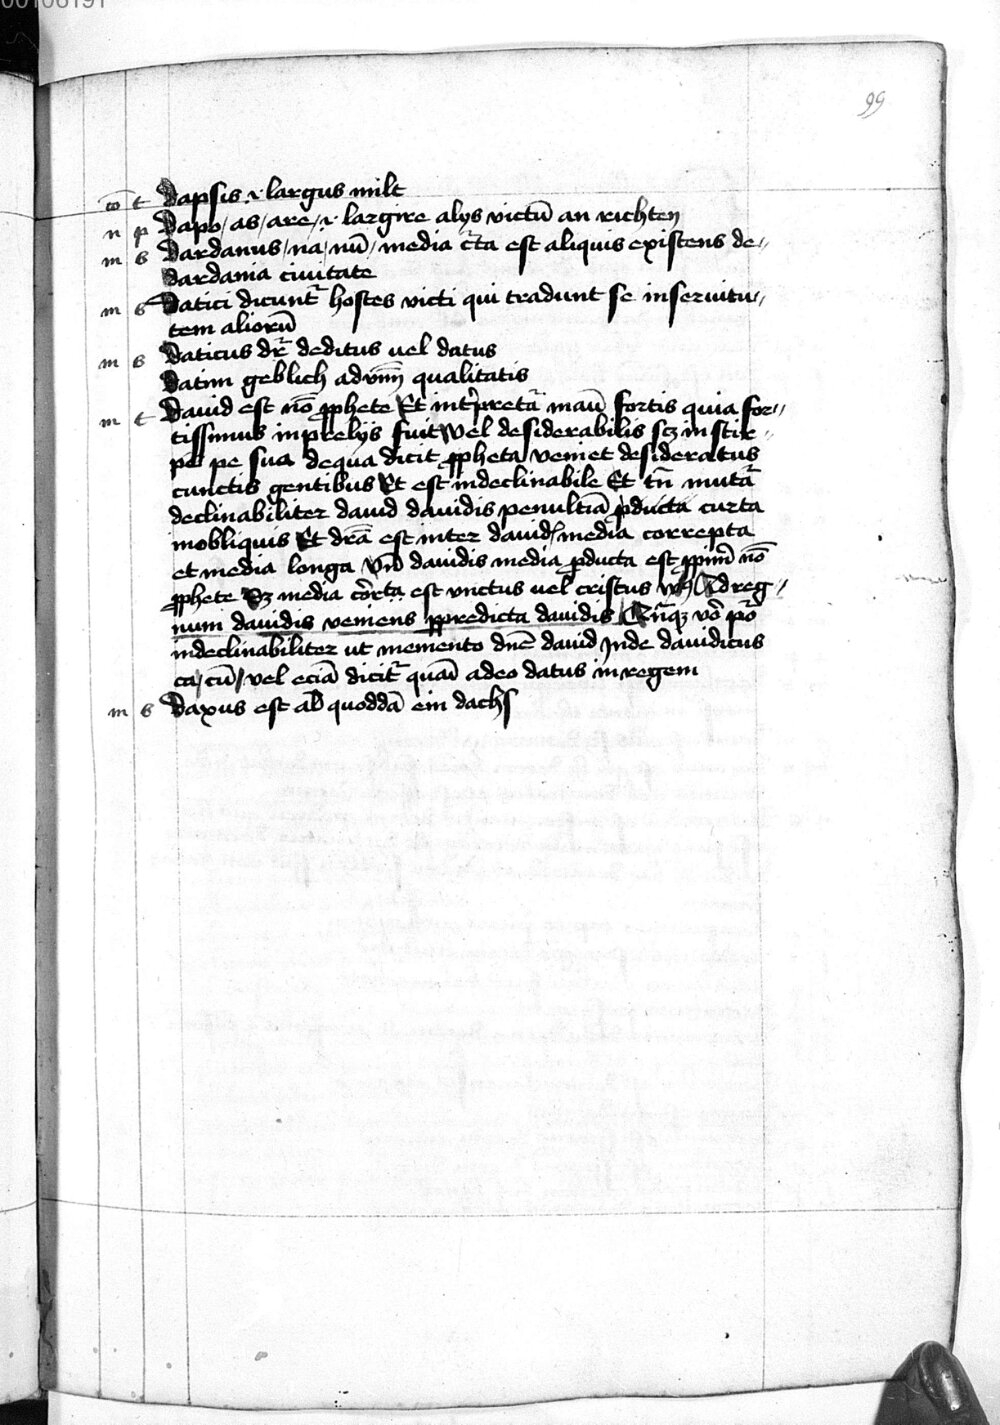 00106191
99
co t dapsis .i. largus milt
n p dapo / as / are / .i. largire alys victū an richten
m s dardanus / na / nū / media cr̄ta est aliquis existens de
dardania ciuitate
m s datici dicunt̄ hostes victi qui tradunt se in seruitu
tem aliorū
m s daticus dr̄ deditus uel datus
datim geblich adum̄ qualitatis
m t dauid est nō ꝓphete Et int̄pretā manū fortis quia for
tissimus in prelijs fuit vel desiderabilis scꝫ in stir
pe sua de qua dicit ꝓpheta veniet desideratus
cunctis gentibus Et est indeclinabile Et tn̄ mutā
declinabiliter dauid dauidis penultīa ꝓducta curta
in obliquis Et dr̄ā est inter dauid / media correpta
et media longa vn̄ dauidis media ꝓducta est ꝓpriū nō
ꝓphete Sꝫ media cōrta est vnctus uel cristus Ad reg
num dauidis veniens predicta dauidis
indeclinabiliter ut memento dn̄e dauid Inde dauidicus
ca / cū / vel eciā dicit̄ quāi adeo datus in regem
m s daxus est al̄ quoddā ein dachs